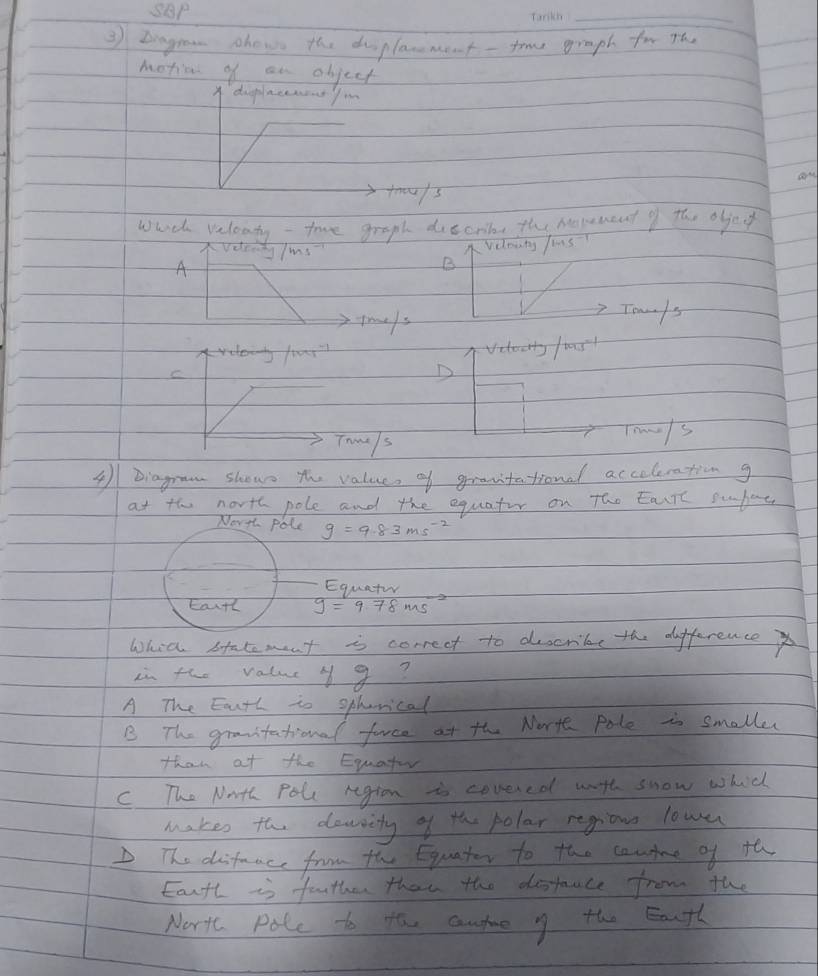 SBP
Tarikh
3) Diagram shows the displacement - time graph for the
motion of an object
displacement/m
time/s
Which velocity - time graph describe the movement of the object
A Velocity/ms⁻¹
B Velocity/ms⁻¹
Time/s
Time/s
C Velocity/ms⁻¹
D Velocity/ms⁻¹
Time/s
Time/s
4) Diagram shows the values of gravitational acceleration g
at the north pole and the equator on The Earth surface
North Pole g = 9.83 ms⁻²
Equator
Earth g = 9.78 ms⁻²
Which statement is correct to describe the difference
in the value of g ?
A The Earth is spherical
B The gravitational force at the North Pole is smaller
than at the Equator
C The North Pole region is covered with snow which
makes the density of the polar regions lower
D The distance from the Equator to the centre of the
Earth is further than the distance from the
North Pole to the centre of the Earth